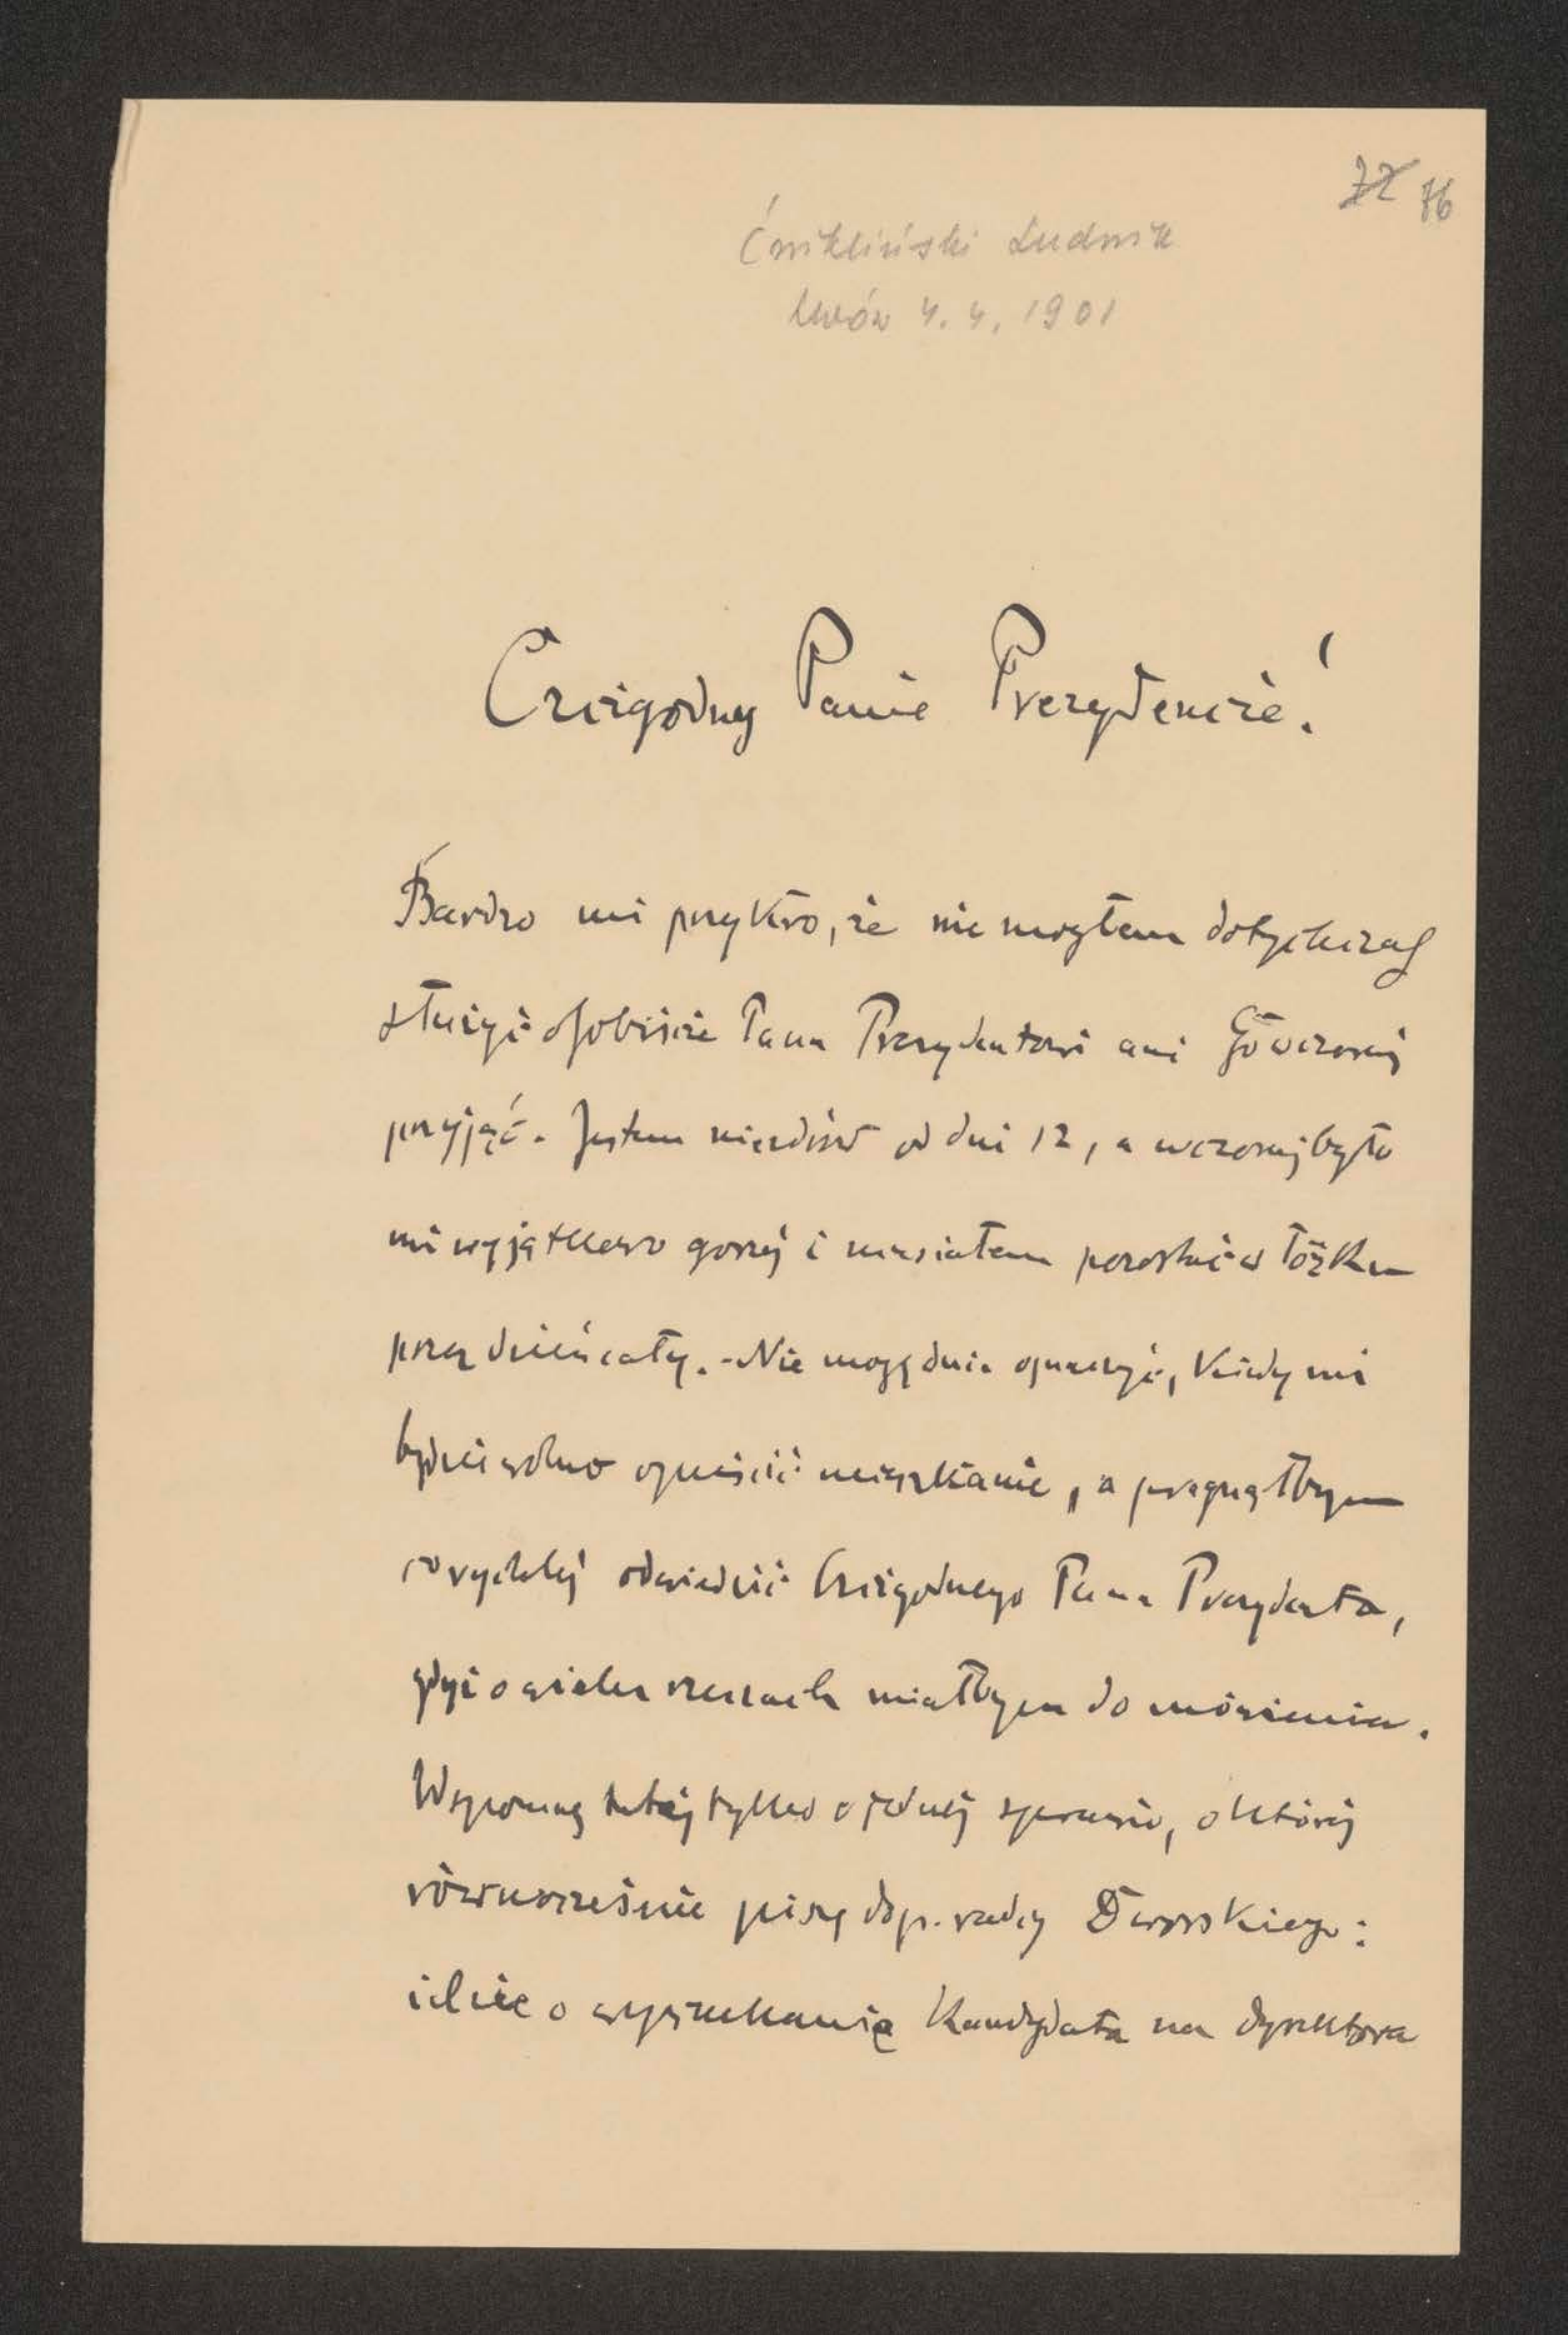 72 76
Ćwikliński Ludwik
Lwów 4. 4. 1901
Czcigodny Panie Prezydencie!
Bardzo mi przykro, że nie mogłem dotychczas
służyć osobiście Panu Prezydentowi ani Go wczoraj
przyjąć. Jestem niezdrów od dni 12, a wczoraj było
mi wyjątkowo gorzej i musiałem pozostać w łóżku
przez dzień cały. - Nie mogę dnia oznaczyć, kiedy mi
będzie wolno opuścić mieszkanie, a pragnąłbym
co rychlej odwiedzić Czcigodnego Pana Prezydenta,
gdyż o wielu rzeczach miałbym do mówienia.
Wspomnę tutaj tylko o jednej sprawie, o której
równocześnie piszę do p. radcy Dworskiego:
idzie o wyszukanie kandydata na dyrektora